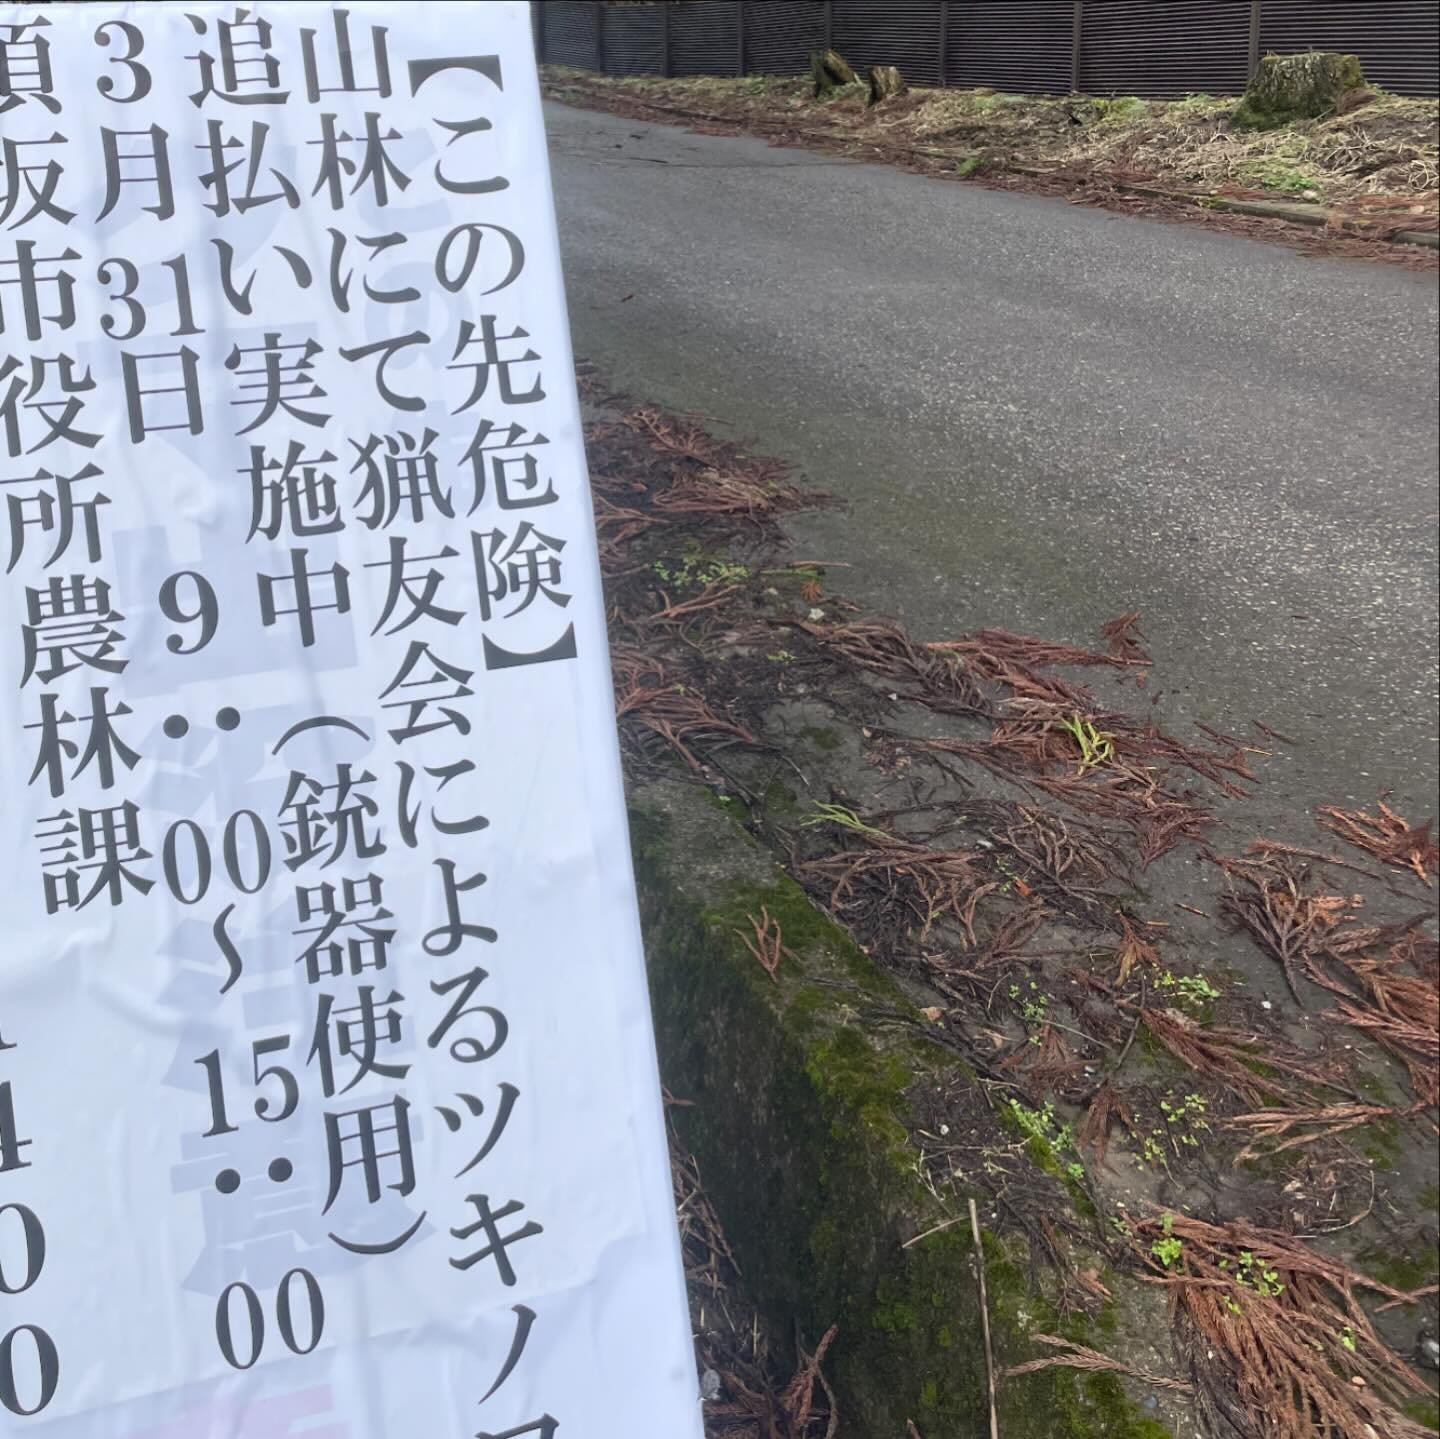 【この先危険】
山林にて猟友会によるツキノ
追払い実施中（銃器使用）
3月31日 9：00～15：00
須坂市役所農林課